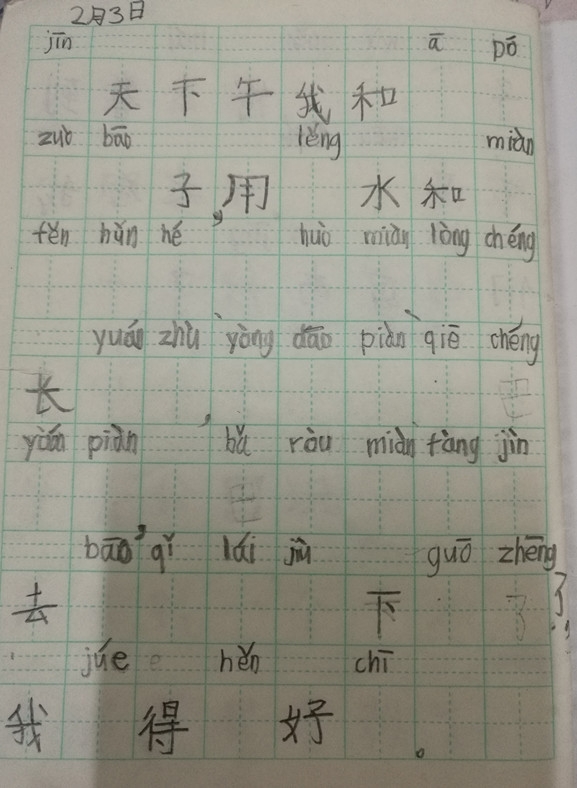 2月3日
jīn ā pó
天下午我和
zuò bāo lěng miàn
子,用 水和
fěn hǔn hé huò miàn lòng chéng
yuán zhù yòng dāo piàn qiē chéng
长 ,
yuán piàn bǎ ròu miàn tàng jìn
bāo, qǐ lái jiù guō zhēng
去 下 了
júe hěn chī
我 得 好 。